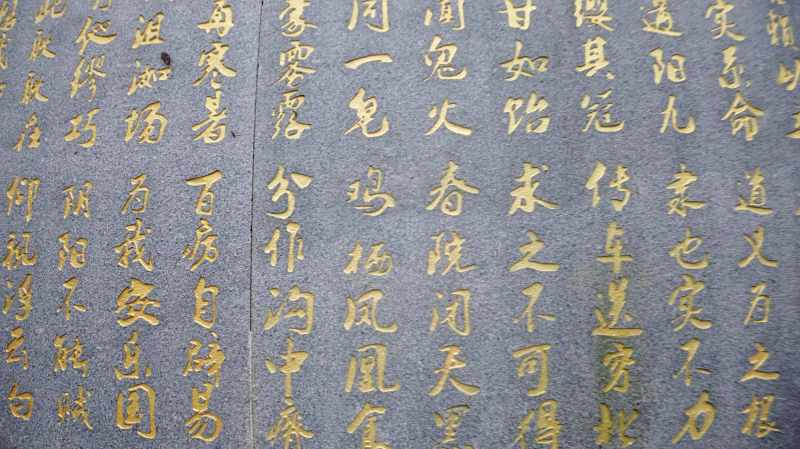 赖以
实系命 道义为之根
遘阳九 隶也实不力
缨其冠 传车送穷北
甘如饴 求之不可得
鬼火 春院闭天黑
同一皂 鸡栖凤凰食
蒙雾露 分作沟中瘠
再寒暑 百疠自辟易
沮洳场 为我安乐国
有他缪巧 阴阳不能贼
此耿耿在 仰视浮云白